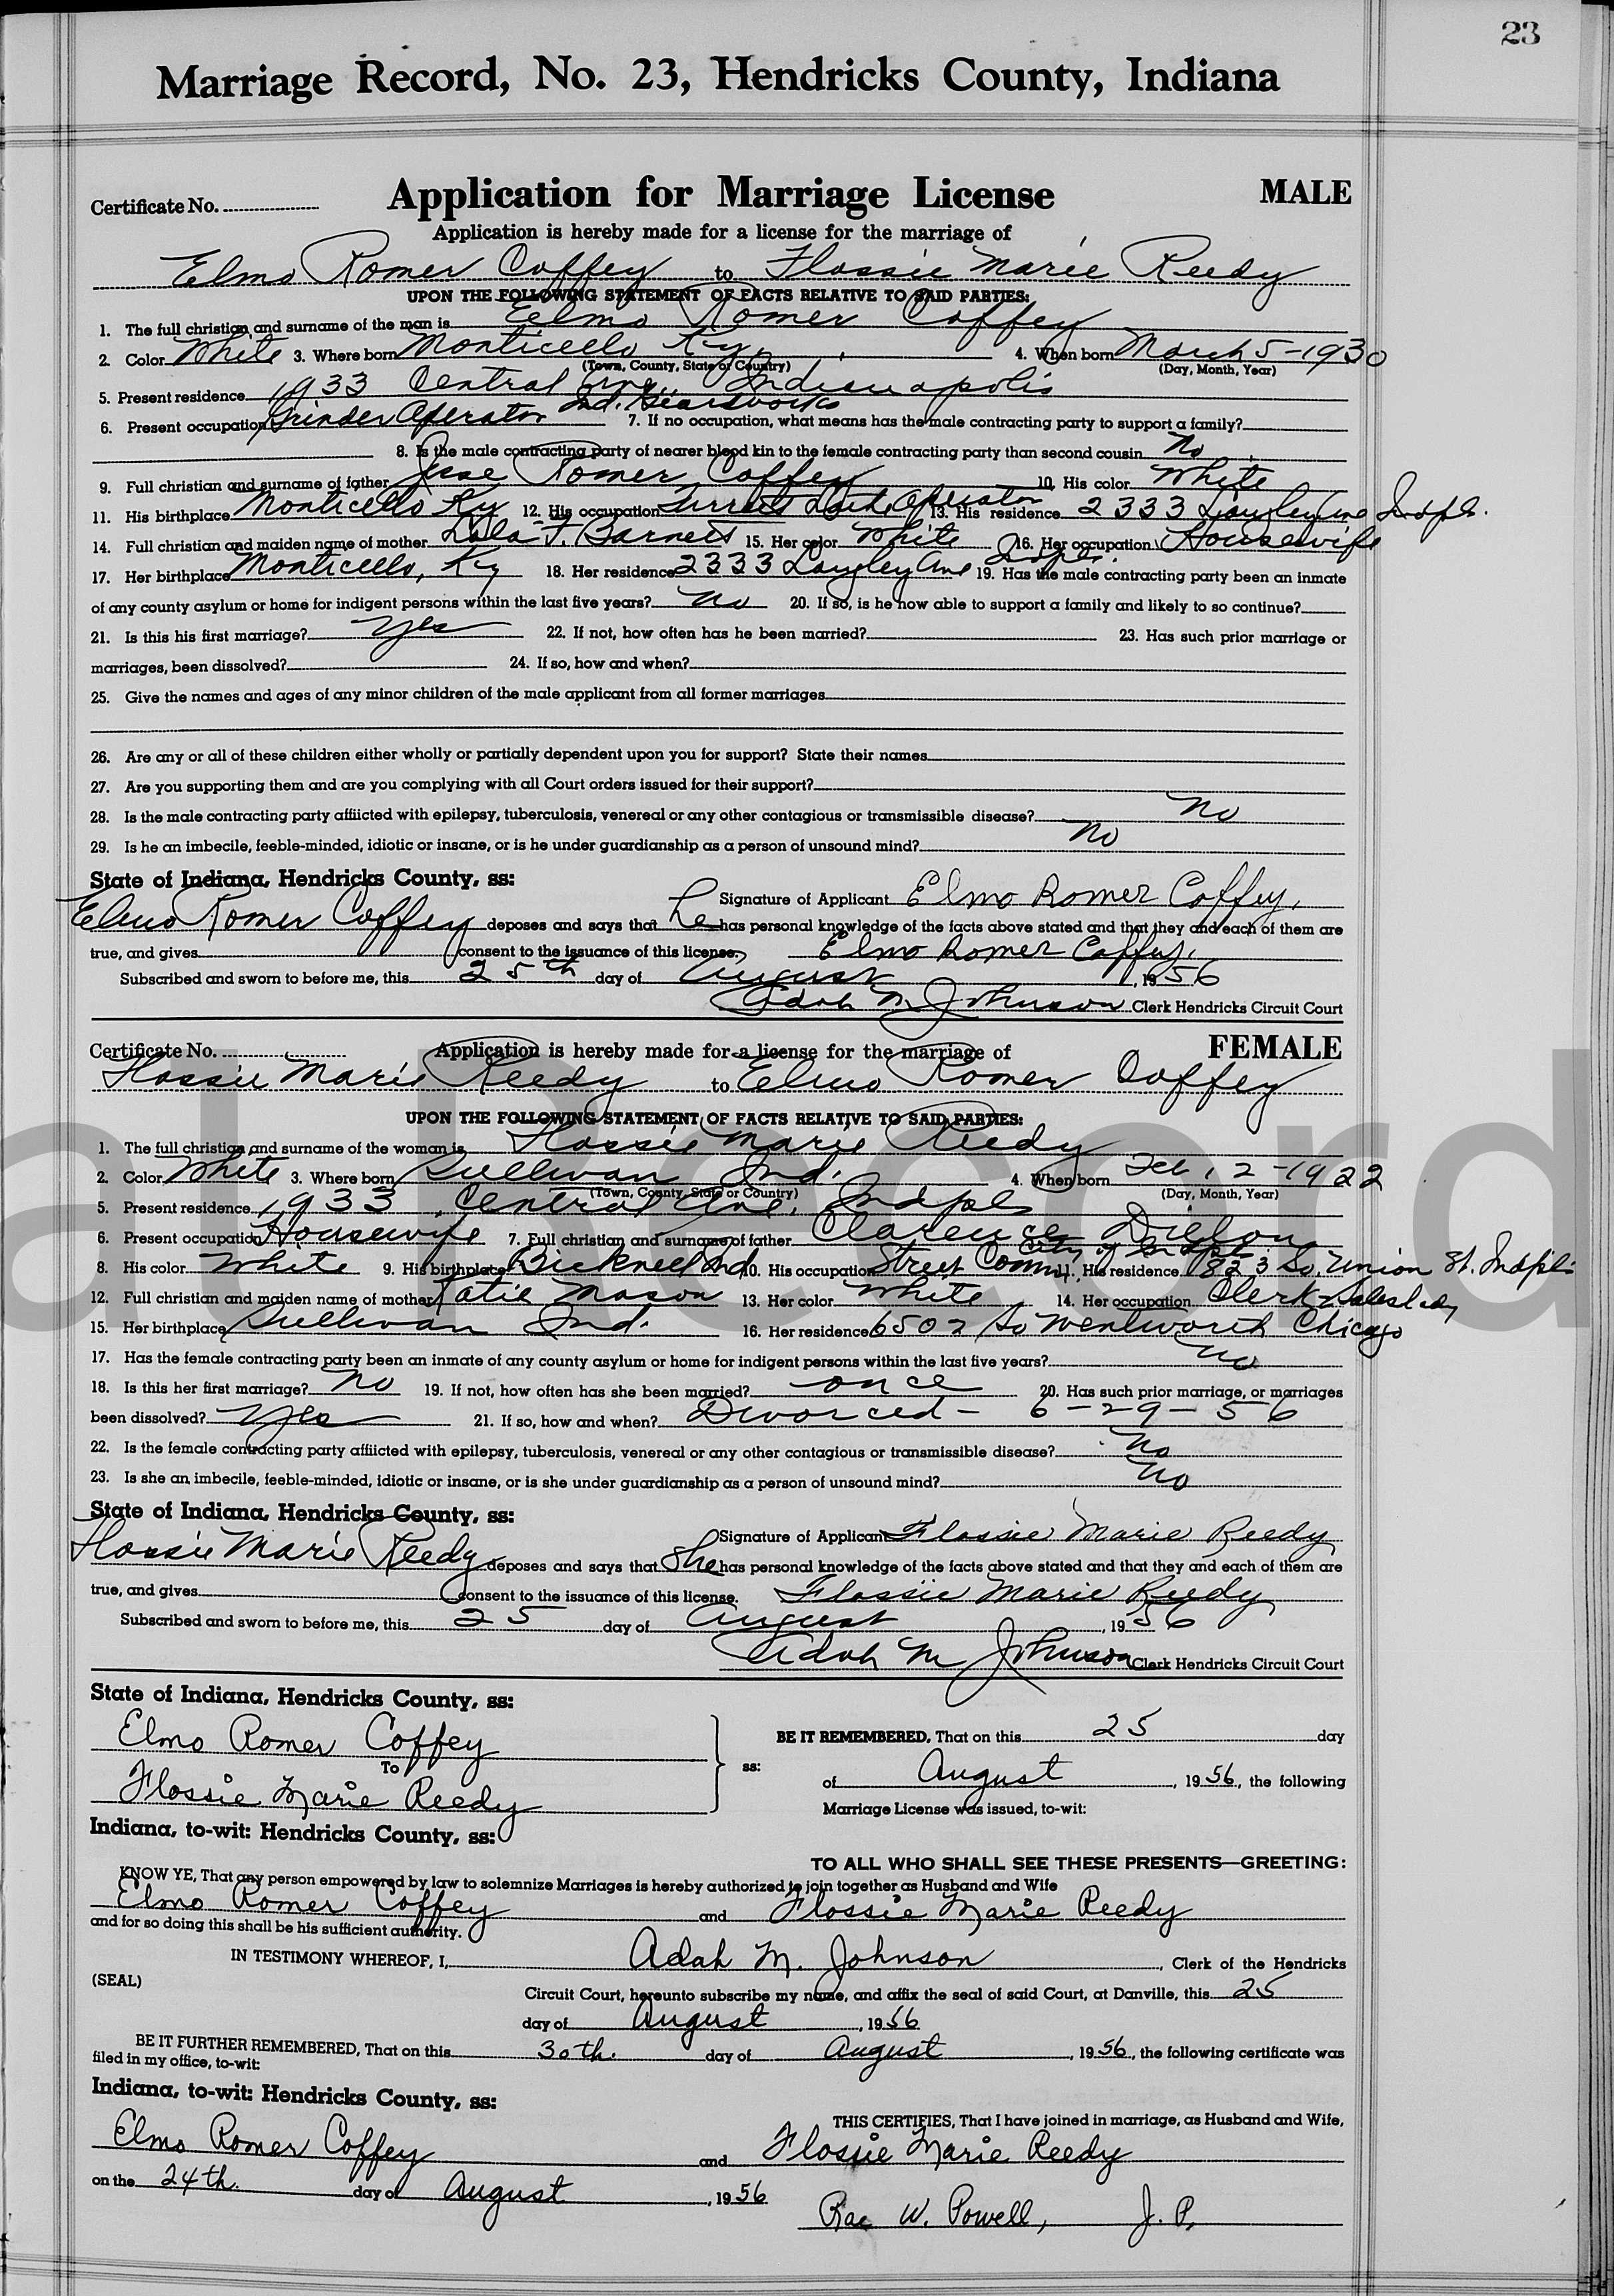 23
Marriage Record, No. 23, Hendricks County, Indiana
Certificate No. Application for Marriage License MALE
Application is hereby made for a license for the marriage of
Elmo Romer Coffey to Flossie Marie Reedy
UPON THE FOLLOWING STATEMENT OF FACTS RELATIVE TO SAID PARTIES:
1. The full christian and surname of the man is Elmo Romer Coffey
2. Color White 3. Where born Monticello Ky. 4. When born March 5-1930
(Town, County, State or Country) (Day, Month, Year)
5. Present residence 1933 Central Ave., Indianapolis
6. Present occupation Grinder Operator Ind. Gearworks 7. If no occupation, what means has the male contracting party to support a family?
8. Is the male contracting party of nearer blood kin to the female contracting party than second cousin No
9. Full christian and surname of father Romer Coffey 10. His color White
11. His birthplace Monticello Ky 12. His occupation Operator 13. His residence 2333 Langley Ave Indpls.
14. Full christian and maiden name of mother Lula F. Barnett 15. Her color White 16. Her occupation Housewife
17. Her birthplace Monticello, Ky 18. Her residence 2333 Langley Ave Indpls. 19. Has the male contracting party been an inmate
of any county asylum or home for indigent persons within the last five years? no 20. If so, is he now able to support a family and likely to so continue?
21. Is this his first marriage? Yes 22. If not, how often has he been married? 23. Has such prior marriage or
marriages, been dissolved? 24. If so, how and when?
25. Give the names and ages of any minor children of the male applicant from all former marriages
26. Are any or all of these children either wholly or partially dependent upon you for support? State their names
27. Are you supporting them and are you complying with all Court orders issued for their support?
28. Is the male contracting party afflicted with epilepsy, tuberculosis, venereal or any other contagious or transmissible disease? No
29. Is he an imbecile, feeble-minded, idiotic or insane, or is he under guardianship as a person of unsound mind? No
State of Indiana, Hendricks County, ss:
Signature of Applicant Elmo Romer Coffey.
Elmo Romer Coffey deposes and says that he has personal knowledge of the facts above stated and that they and each of them are
true, and gives consent to the issuance of this license. Elmo Romer Coffey.
Subscribed and sworn to before me, this 25th day of August, 1956
Adah M Johnson Clerk Hendricks Circuit Court
Certificate No. Application is hereby made for a license for the marriage of FEMALE
Flossie Marie Reedy to Elmo Romer Coffey
UPON THE FOLLOWING STATEMENT OF FACTS RELATIVE TO SAID PARTIES:
1. The full christian and surname of the woman is Flossie Marie Reedy
2. Color White 3. Where born Sullivan Ind. 4. When born Feb. 2-1922
(Town, County, State or Country) (Day, Month, Year)
5. Present residence 1933 Central Ave. Indpls
6. Present occupation Housewife 7. Full christian and surname of father Clarence Dillon
8. His color White 9. His birthplace Bicknell Ind 10. His occupation Street Comm. City of Indpls 11. His residence 1823 So. Union St. Indpls
12. Full christian and maiden name of mother Katie Mason 13. Her color White 14. Her occupation Clerk-Saleslady
15. Her birthplace Sullivan Ind. 16. Her residence 6502 So Wentworth Chicago
17. Has the female contracting party been an inmate of any county asylum or home for indigent persons within the last five years? no
18. Is this her first marriage? No 19. If not, how often has she been married? once 20. Has such prior marriage, or marriages
been dissolved? Yes 21. If so, how and when? Divorced - 6-29-56
22. Is the female contracting party afflicted with epilepsy, tuberculosis, venereal or any other contagious or transmissible disease? No
23. Is she an imbecile, feeble-minded, idiotic or insane, or is she under guardianship as a person of unsound mind? No
State of Indiana, Hendricks County, ss:
Signature of Applicant Flossie Marie Reedy
Flossie Marie Reedy deposes and says that She has personal knowledge of the facts above stated and that they and each of them are
true, and gives consent to the issuance of this license. Flossie Marie Reedy
Subscribed and sworn to before me, this 25 day of August, 1956
Adah M Johnson Clerk Hendricks Circuit Court
State of Indiana, Hendricks County, ss:
Elmo Romer Coffey BE IT REMEMBERED, That on this 25 day
To ss:
Flossie Marie Reedy of August, 1956, the following
Marriage License was issued, to-wit:
Indiana, to-wit: Hendricks County, ss:
TO ALL WHO SHALL SEE THESE PRESENTS—GREETING:
KNOW YE, That any person empowered by law to solemnize Marriages is hereby authorized to join together as Husband and Wife
Elmo Romer Coffey and Flossie Marie Reedy
and for so doing this shall be his sufficient authority.
IN TESTIMONY WHEREOF, I, Adah M. Johnson, Clerk of the Hendricks
(SEAL)
Circuit Court, hereunto subscribe my name, and affix the seal of said Court, at Danville, this 25
day of August, 1956
BE IT FURTHER REMEMBERED, That on this 30th. day of August, 1956, the following certificate was
filed in my office, to-wit:
Indiana, to-wit: Hendricks County, ss:
THIS CERTIFIES, That I have joined in marriage, as Husband and Wife,
Elmo Romer Coffey and Flossie Marie Reedy
on the 24th. day of August, 1956
Rae W. Powell, J. P.
al Record